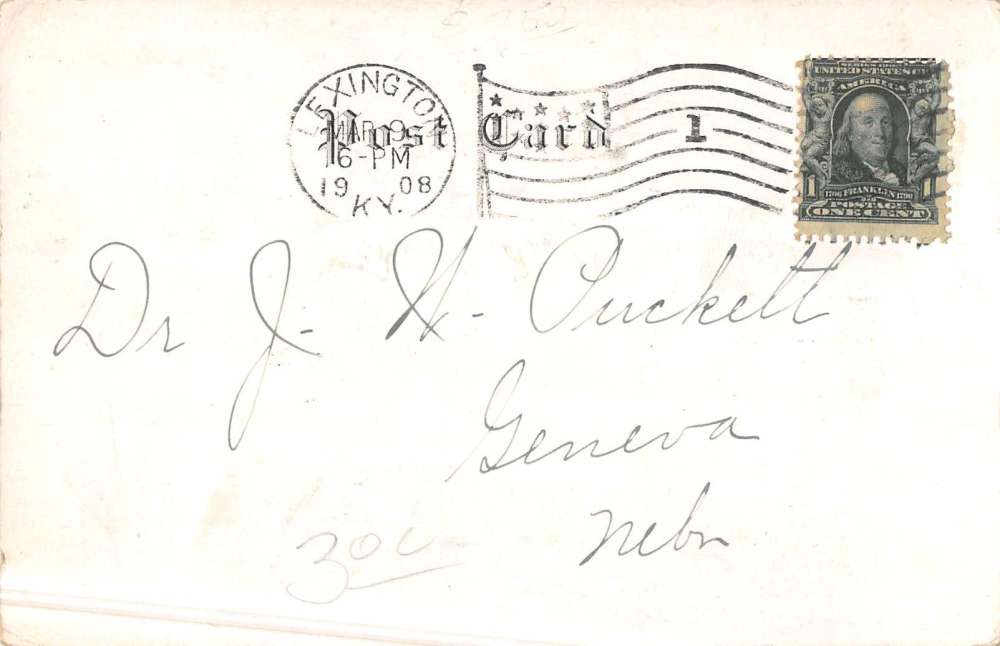 LEXINGTON
MAR 9
6-PM
19 08
KY.
Post Card
1
SERIES 1902
UNITED STATES OF
AMERICA
1 1
1706 FRANKLIN 1790
POSTAGE
ONE CENT
Dr J. H. Puckett
Geneva
Nebr
30c